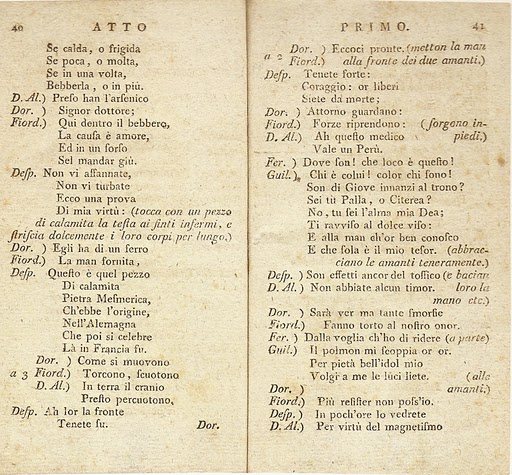 40 ATTO
Se calda, o frigida
Se poca, o molta,
Se in una volta,
Bebberla, o in più.
D. Al.) Preſo han l'arſenico
Dor. ) Signor dottore;
Fiord.) Qui dentro il bebbero,
La cauſa è amore,
Ed in un ſorſo
Sel mandar giù.
Deſp. Non vi affannate,
Non vi turbate
Ecco una prova
Di mia virtù: (tocca con un pezzo
di calamita la teſta ai finti infermi, e
ſtriſcia dolcemente i loro corpi per lungo.)
Dor. ) Egli ha di un ferro
Fiord.) La man fornita,
Deſp. Queſto è quel pezzo
Di calamita
Pietra Meſmerica,
Ch'ebbe l'origine,
Nell'Alemagna
Che poi sì celebre
Là in Francia fu.
Dor. ) Come si muovono
a 3 Fiord.) Torcono, ſcuotono
D. Al.) In terra il cranio
Preſto percuotono,
Deſp. Ah lor la fronte
Tenete ſu. Dor.
PRIMO. 41
Dor. ) Eccoci pronte. (metton la man
a 2 Fiord.) alla fronte dei due amanti.)
Deſp. Tenete forte:
Coraggio: or liberi
Siete da morte;
Dor. ) Attorno guardano:
Fiord.) Forze riprendono: (ſorgono in-
D. Al.) Ah queſto medico piedi.)
Vale un Perù.
Fer. ) Dove ſon! che loco è queſto!
Guil.) Chi è colui! color chi ſono!
Son di Giove innanzi al trono?
Sei tù Palla, o Citerea?
No, tu ſei l'alma mia Dea;
Ti ravviſo al dolce viſo:
E alla man ch'or ben conoſco
E che ſola è il mio teſor. (abbrac-
ciano le amanti teneramente.)
Deſp. ) Son effetti ancor del toſſico (e bacian
D. Al.) Non abbiate alcun timor. loro la
mano etc.)
Dor. ) Sarà ver ma tante ſmorfie
Fiord.) Fanno torto al noſtro onor.
Fer. ) Dalla voglia ch'ho di ridere (a parte)
Guil.) Il polmon mi ſcoppia or or.
Per pietà bell'idol mio
Volgi a me le luci liete. (alle
Dor. ) amanti.)
Fiord.) Più reſiſter non poſs'io.
Deſp. ) In poch'ore lo vedrete
D. Al.) Per virtù del magnetiſmo